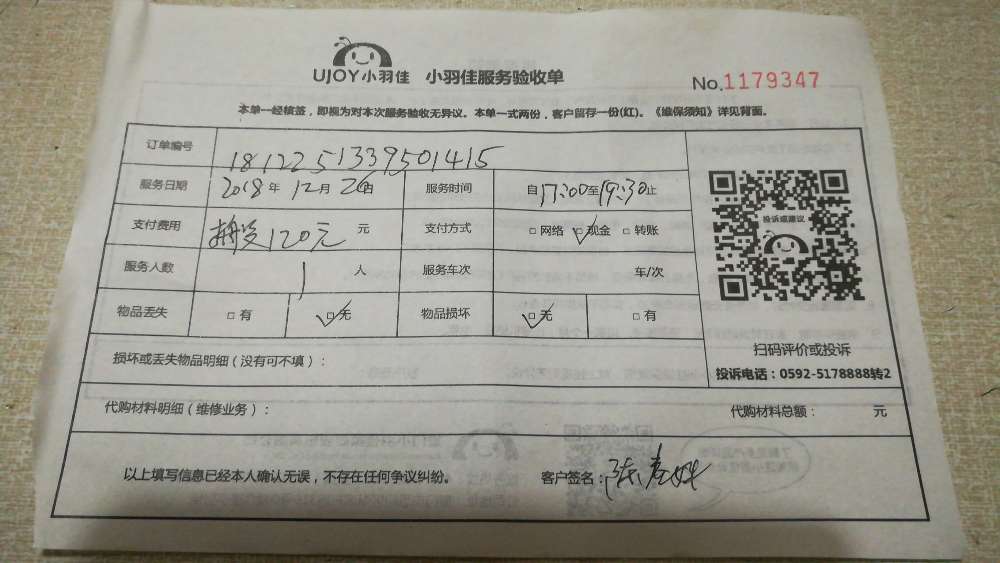 UJOY小羽佳 小羽佳服务验收单
No.1179347
本单一经核签，即视为对本次服务验收无异议。本单一式两份，客户留存一份(红)。《维保须知》详见背面。
订单编号 1812251339501415
服务日期 2018年12月26日 服务时间 自17:00至19:30止
支付费用 120元 元 支付方式 □网络 □现金 □转账
服务人数 1 人 服务车次 车/次
物品丢失 □有 □无 物品损坏 □无 □有
投诉或建议
扫码评价或投诉
投诉电话：0592-5178888转2
损坏或丢失物品明细（没有可不填）：
代购材料明细（维修业务）： 代购材料总额： 元
以上填写信息已经本人确认无误，不存在任何争议纠纷。 客户签名：陈